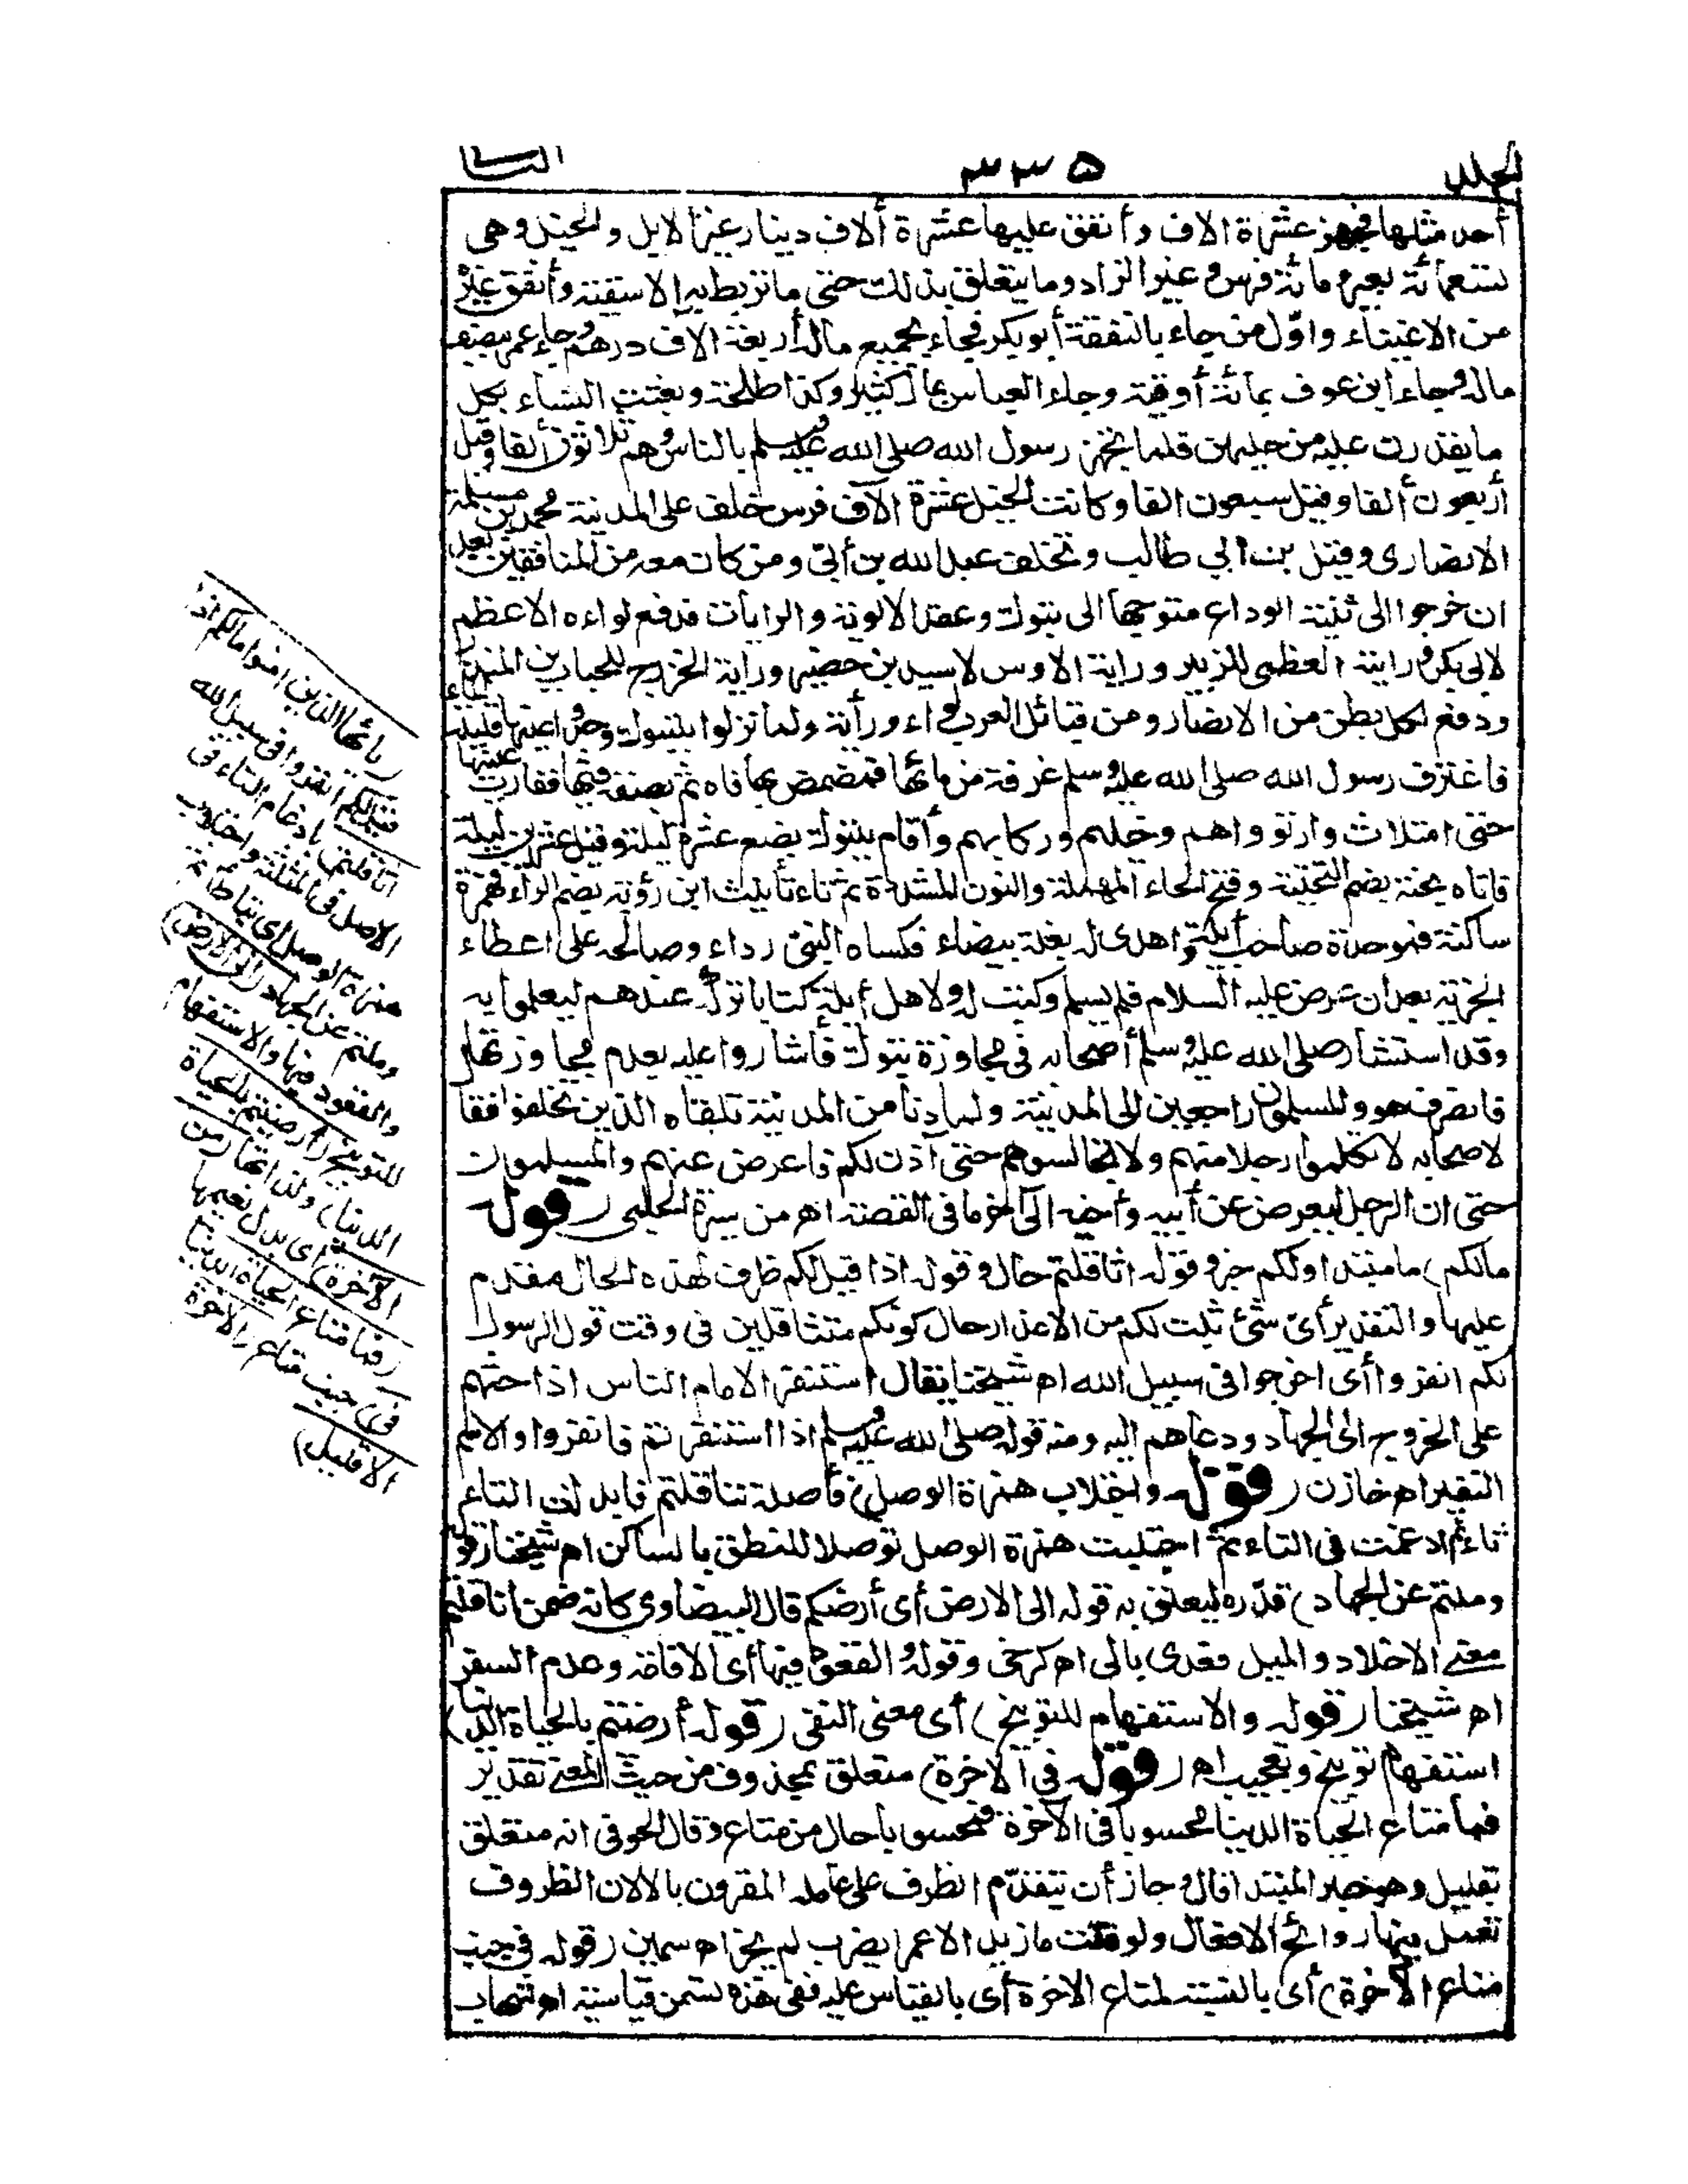 الجلد ٣٣٥ الثانى
أحد مثلها فجهز عشرة الاف وأنفق عليها عشرة ألاف دينار غير الابل والخيل وهى
تسعمائة بعير ومائة فرس وغير الزاد وما يتعلق بذلك حتى ما تربط به الاسقية وأنفق غيره
من الاغنياء واوّل من جاء بالنفقة أبو بكر فجاء بجميع ماله أربعة الاف درهم وجاء عمر بنصف
ماله وجاء ابن عوف بمائة أوقية وجاء العباس بمال كثير وكذا طلحة وبعثت النساء بكل
ما يقدرن عليه من حليهن فلما تجهز رسول الله صلى الله عليه وسلم بالناس وهم ثلاثون ألفا وقيل
أربعون ألفا وقيل سبعون الفا وكانت الخيل عشرة آلاف فرس خلف على المدينة محمد بن مسلمة
الانصارى وقيل بن ابي طالب وتخلف عبد الله بن أبىّ ومن كان معه من المنافقين بعد
ان خرجوا الى ثنية الوداع متوجها الى تبوك وعقد الالوية والرايات فدفع لواءه الاعظم
لابى بكر ورايته العظمى للزبير وراية الاوس لاسيد بن حضير وراية الخزرج للحباب بن المنذر
ودفع لكل بطن من الانصار ومن قبائل العرب لواء وراية ولما نزلوا بتبوك وجدوا عينها قليلة الماء
فاغترف رسول الله صلى الله عليه وسلم غرفة من مائها فمضمض بها فاه ثم بصقه فيها ففارت عينها
حتى امتلات وارتووا هم وخيلهم وركابهم وأقام بتبوك بضع عشرة ليلة وقيل عشرين ليلة
فاتاه يحنة بضم التحتية وفتح الحاء المهملة والنون المشددة ثم تاء تأنيث ابن رؤبة بضم الراء فهمزة
ساكنة فموحدة صاحب أيلة واهدى له بغلة بيضاء فكساه النبىّ رداء وصالحه على اعطاء
الجزية بعد ان عرض عليه السلام فلم يسلم وكتب له ولاهل أيلة كتابا تركه عندهم ليعلموا به
وقد استشار صلى الله عليه وسلم أصحابه فى مجاوزة تبوك فأشاروا عليه بعدم مجاوزتها
فانصرف هو والمسلمون راجعين الى المدينة ولما دنا من المدينة تلقاه الذين تخلفوا فقال
لاصحابه لا تكلموا رجلا منهم ولا تجالسوهم حتى آذن لكم فاعرض عنهم والمسلمون
حتى ان الرجل ليعرض عن أبيه وأخيه الى آخر ما فى القصة اهـ من سيرة الحلبى (قوله
مالكم) ما مبتدا ولكم خبر وقوله اثاقلتم حال وقوله اذا قيل لكم ظرف لهذه الحال مقدم
عليها والتقدير أىّ شئ ثبت لكم من الاعذار حال كونكم متثاقلين فى وقت قول الرسول
لكم انفروا أى اخرجوا فى سبيل الله اهـ شيخنا يقال استنفر الامام الناس اذا حثهم
على الخروج الى الجهاد ودعاهم اليه ومنه قوله صلى الله عليه وسلم اذا استنفرتم فانفروا والاسم
النفير اهـ خازن (قوله واجتلاب همزة الوصل) فأصله تثاقلتم فابدلت التاء
ثاء ثم ادغمت فى الثاء ثم اجتلبت همزة الوصل توصلا للنطق بالساكن اهـ شيخنا (قوله
وملتم عن الجهاد) قدّره ليعلق به قوله الى الارض أى أرضكم قال البيضاوى كانه ضمن اثاقلتم
معنى الاخلاد والميل فعدى بالى اهـ كرخى وقوله والقعود فيها أى الاقامة وعدم السفر
اهـ شيخنا (قوله والاستفهام للتوبيخ) أى معنى النفى (قوله أرضيتم بالحياة الدنيا)
استفهام توبيخ وتعجيب اهـ (قوله فى الآخرة) متعلق بمحذوف من حيث المعنى تقديره
فما متاع الحياة الدنيا محسوبا فى الآخرة فمحسوبا حال من متاع وقال الحوفى انه متعلق
بقليل وهو خبر المبتدا قال وجاز أن يتقدّم الظرف على عامله المقرون بالا لان الظروف
تعمل فيها روائح الافعال ولو قلت ما زيد الا عمرا يضرب لم يجز اهـ سمين (قوله فى جنب
متاع الآخرة) أى بالنسبة لمتاع الاخرة أى بالقياس عليه ففى هذه تسمى قياسية اهـ شهاب
(يائها الذين امنوا مالكم اذا
قيل لكم انفروا فى سبيل الله
اثاقلتم) بادغام التاء فى
الاصل فى المثلثة واجتلاب
همزة الوصل أى تباطأتم
وملتم عن الجهاد (الى الارض)
والقعود فيها والاستفهام
للتوبيخ (أرضيتم بالحياة
الدنيا) ولذاتها (من
الآخرة) أى بدل نعيمها
(فما متاع الحياة الدنيا
فى) جنب متاع (الآخرة
الا قليل)